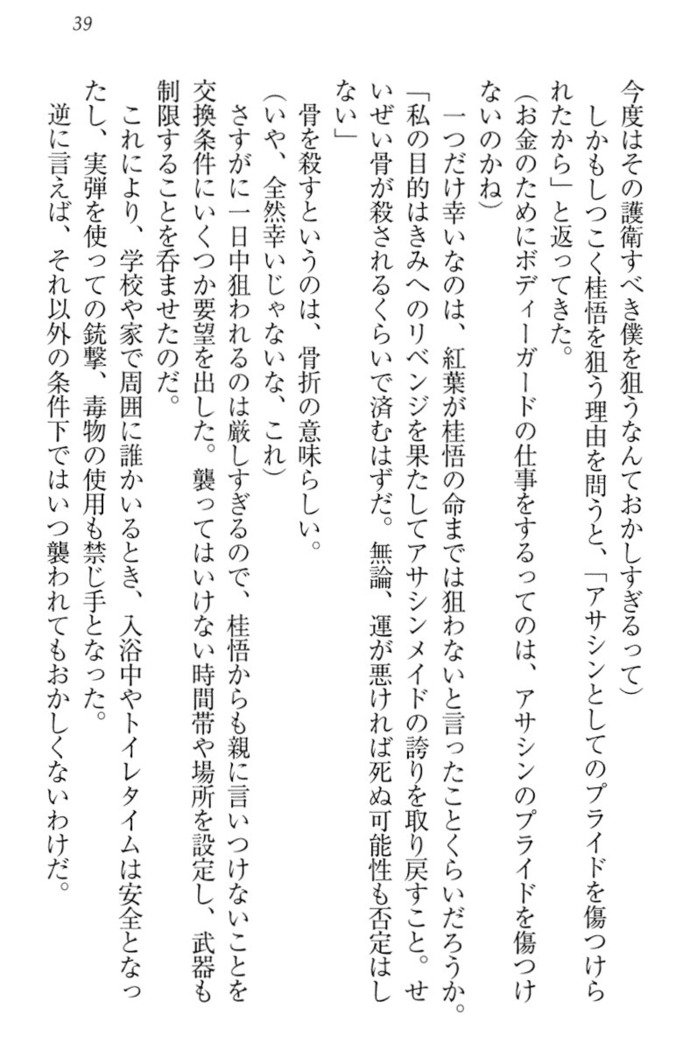 39
今度はその護衛すべき僕を狙うなんておかしすぎるって）
　しかもしつこく桂悟を狙う理由を問うと、「アサシンとしてのプライドを傷つけら
れたから」と返ってきた。
（お金のためにボディーガードの仕事をするってのは、アサシンのプライドを傷つけ
ないのかね）
　一つだけ幸いなのは、紅葉が桂悟の命までは狙わないと言ったことくらいだろうか。
「私の目的はきみへのリベンジを果たしてアサシンメイドの誇りを取り戻すこと。せ
いぜい骨が殺されるくらいで済むはずだ。無論、運が悪ければ死ぬ可能性も否定はし
ない」
　骨を殺すというのは、骨折の意味らしい。
（いや、全然幸いじゃないな、これ）
　さすがに一日中狙われるのは厳しすぎるので、桂悟からも親に言いつけないことを
交換条件にいくつか要望を出した。襲ってはいけない時間帯や場所を設定し、武器も
制限することを呑ませたのだ。
　これにより、学校や家で周囲に誰かいるとき、入浴中やトイレタイムは安全となっ
たし、実弾を使っての銃撃、毒物の使用も禁じ手となった。
　逆に言えば、それ以外の条件下ではいつ襲われてもおかしくないわけだ。